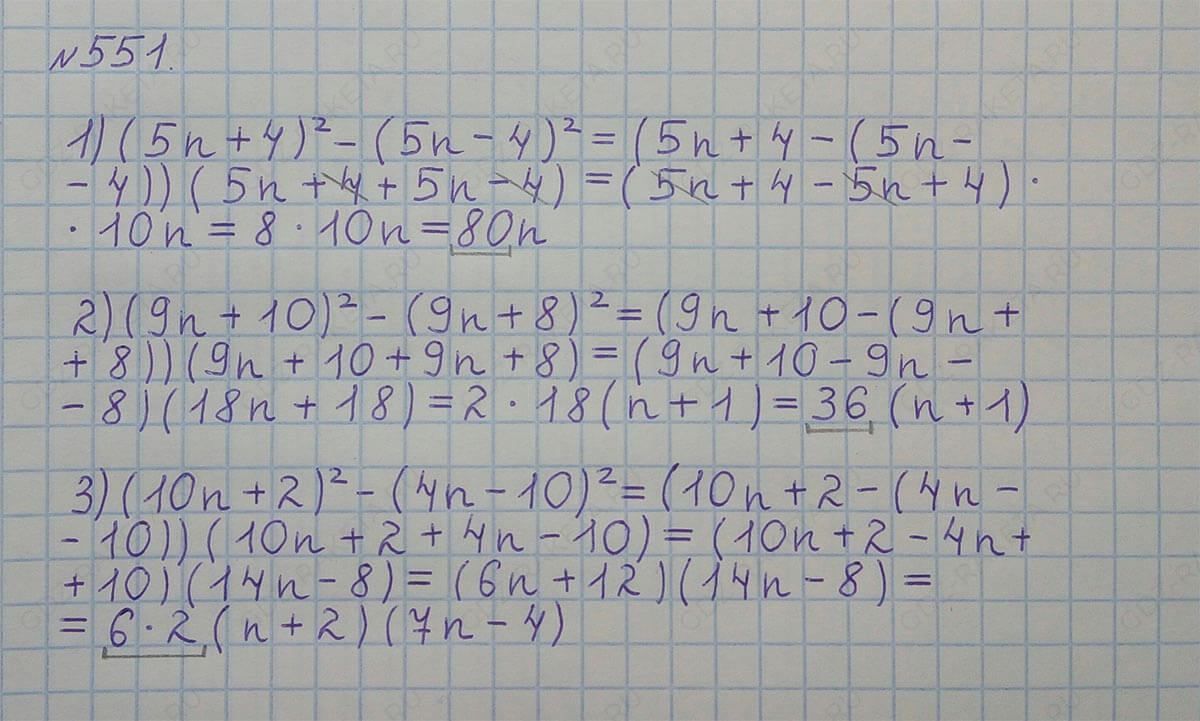 №551.
1) (5n + 4)² - (5n - 4)² = (5n + 4 - (5n -
- 4)) (5n + 4 + 5n - 4) = (5n + 4 - 5n + 4) ·
· 10n = 8 · 10n = 80n
2) (9n + 10)² - (9n + 8)² = (9n + 10 - (9n +
+ 8)) (9n + 10 + 9n + 8) = (9n + 10 - 9n -
- 8) (18n + 18) = 2 · 18 (n + 1) = 36 (n + 1)
3) (10n + 2)² - (4n - 10)² = (10n + 2 - (4n -
- 10)) (10n + 2 + 4n - 10) = (10n + 2 - 4n +
+ 10) (14n - 8) = (6n + 12) (14n - 8) =
= 6 · 2 (n + 2) (7n - 4)